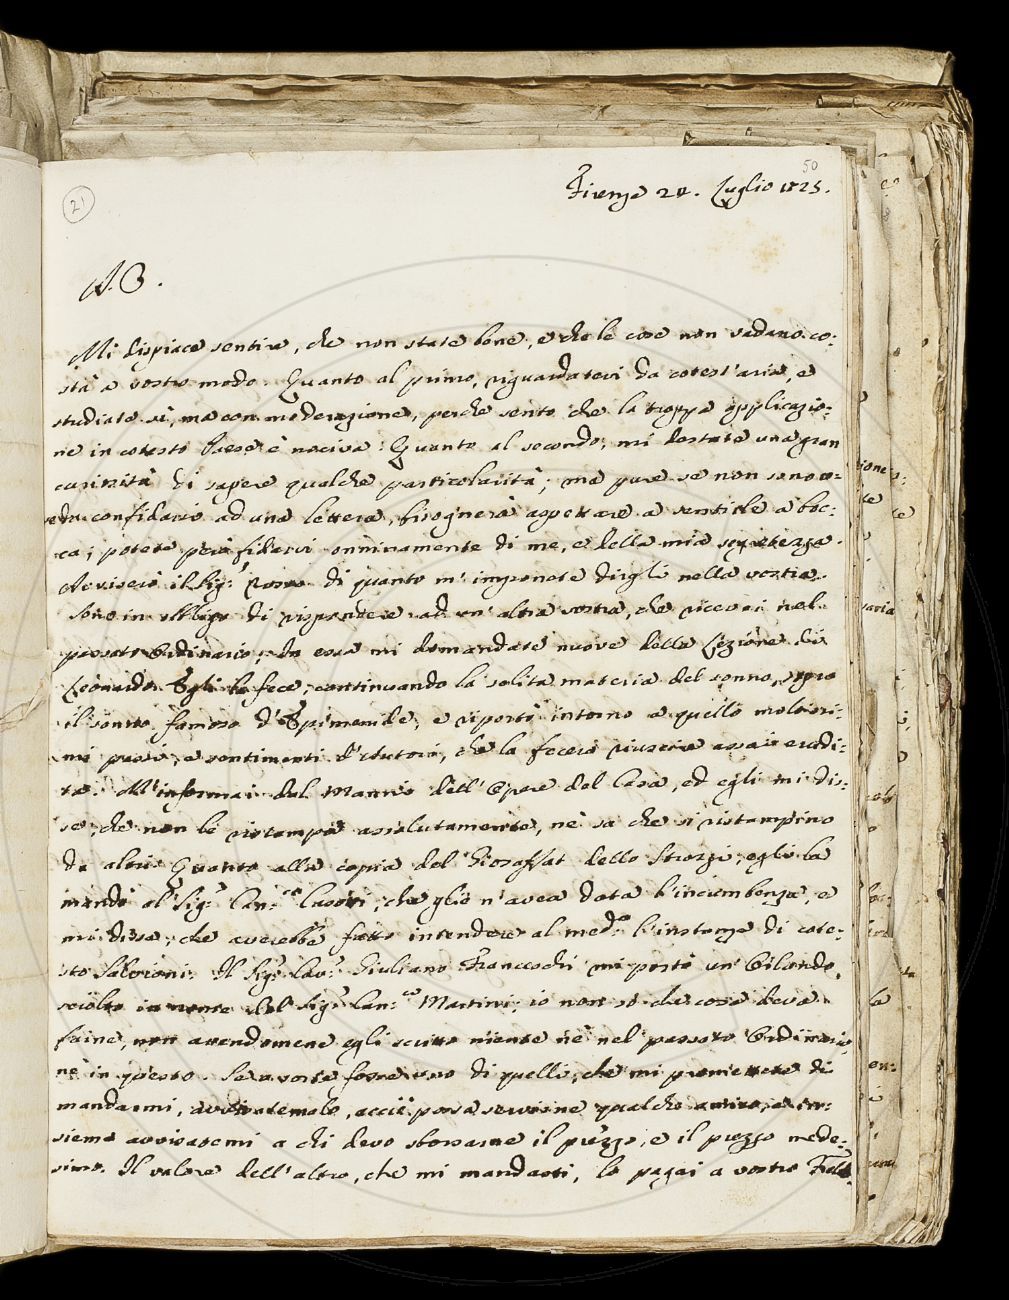 50
21
Firenze 24. Luglio 1725.
A. C.
Mi dispiace sentire, che non state bene, e che le cose non vadano co:
stà a vostro modo. Quanto al primo, riguardatevi da cotest'aria, e
studiate sì, ma con moderazione, perche sento che la troppa applicazio:
ne in cotesto Paese è nociva. Quanto al secondo, mi destate una gran
curiosità di sapere qualche particolarità; ma pure se non sono
confidarsi ad una lettera, bisognerà aspettare a sentirle a boc:
ca; potete però fidarvi onninamente di me, e della mia segretezza.
Avviserò il Sig.r di quanto m'imponete dirgli nella vostra.
Sono in obbligo di rispondere ad un'altra vostra, che ricevei nel
passato Ordinario; In essa mi domandate nuove della Lezione di
Leonardo. Egli la fece, continuando la solita materia del sonno, sopra
il sonno famoso d'Epimenide; e riportò intorno a quello moltissi:
mi passi, e sentimenti d'Autori, che la fecero riuscire assai erudi:
ta. M'informai dal Manni dell'Opere del Casa, ed egli mi dis:
se, che non le ristampa assolutamente, nè sa che si ristampino
da altri. Quanto alla copia del Giosaffat dello Strozzi, egli la
mandò al Sig.r Can.co che glie n'avea data l'incumbenza, e
mi disse, che averebbe fatto intendere al med.o l'instanza di cote:
sto Salvioni. Il Sig.r Cav.r Giuliano Franceschi mi portò un Orlando,
sciolto in nome del Sig.r Can.co Martini; io non so che cosa deva
farne, non avendomene egli scritto niente nè nel passato Ordinario,
nè in questo. Se a sorte fosse uno di quelli, che mi prometteste di
mandarmi, avvisatemelo, acciò possa servirne qualche amico, e in:
sieme avvisatemi a chi devo sborsarne il prezzo, e il prezzo mede:
simo. Il valore dell'altro, che mi mandasti, lo pagai a vostro Frat.